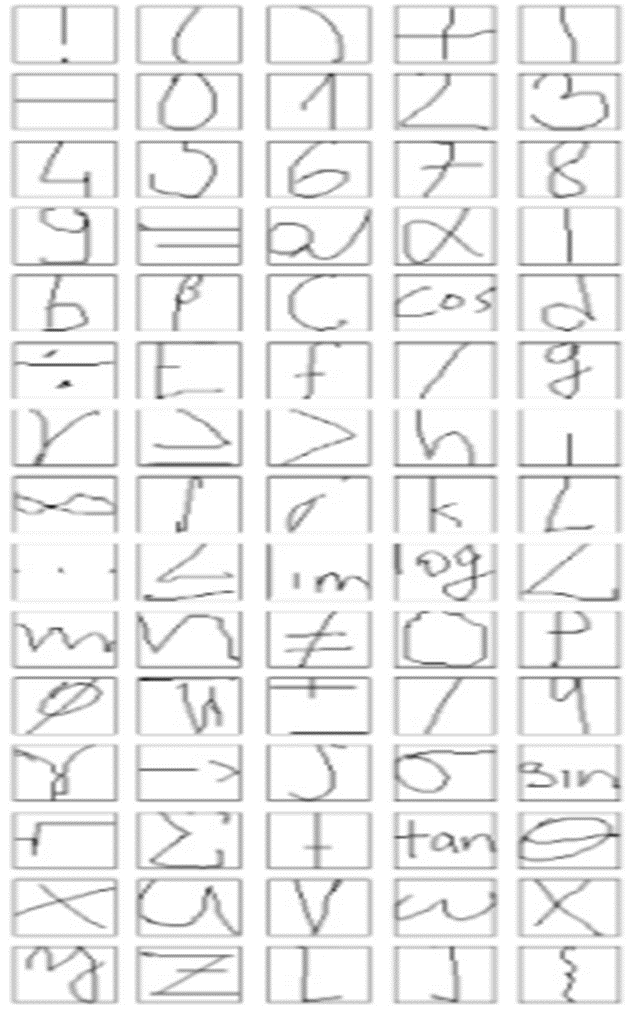 ! ( ) + ,
− 0 1 2 3
4 5 6 7 8
9 = a α |
b β C cos d
÷ E f / g
γ ≥ > h i
∞ ∫ j k L
... ≤ lim log <
m n ≠ o p
φ π ± / q
γ → S σ sin
√ Σ t tan θ
× u v ω X
y z [ ] {